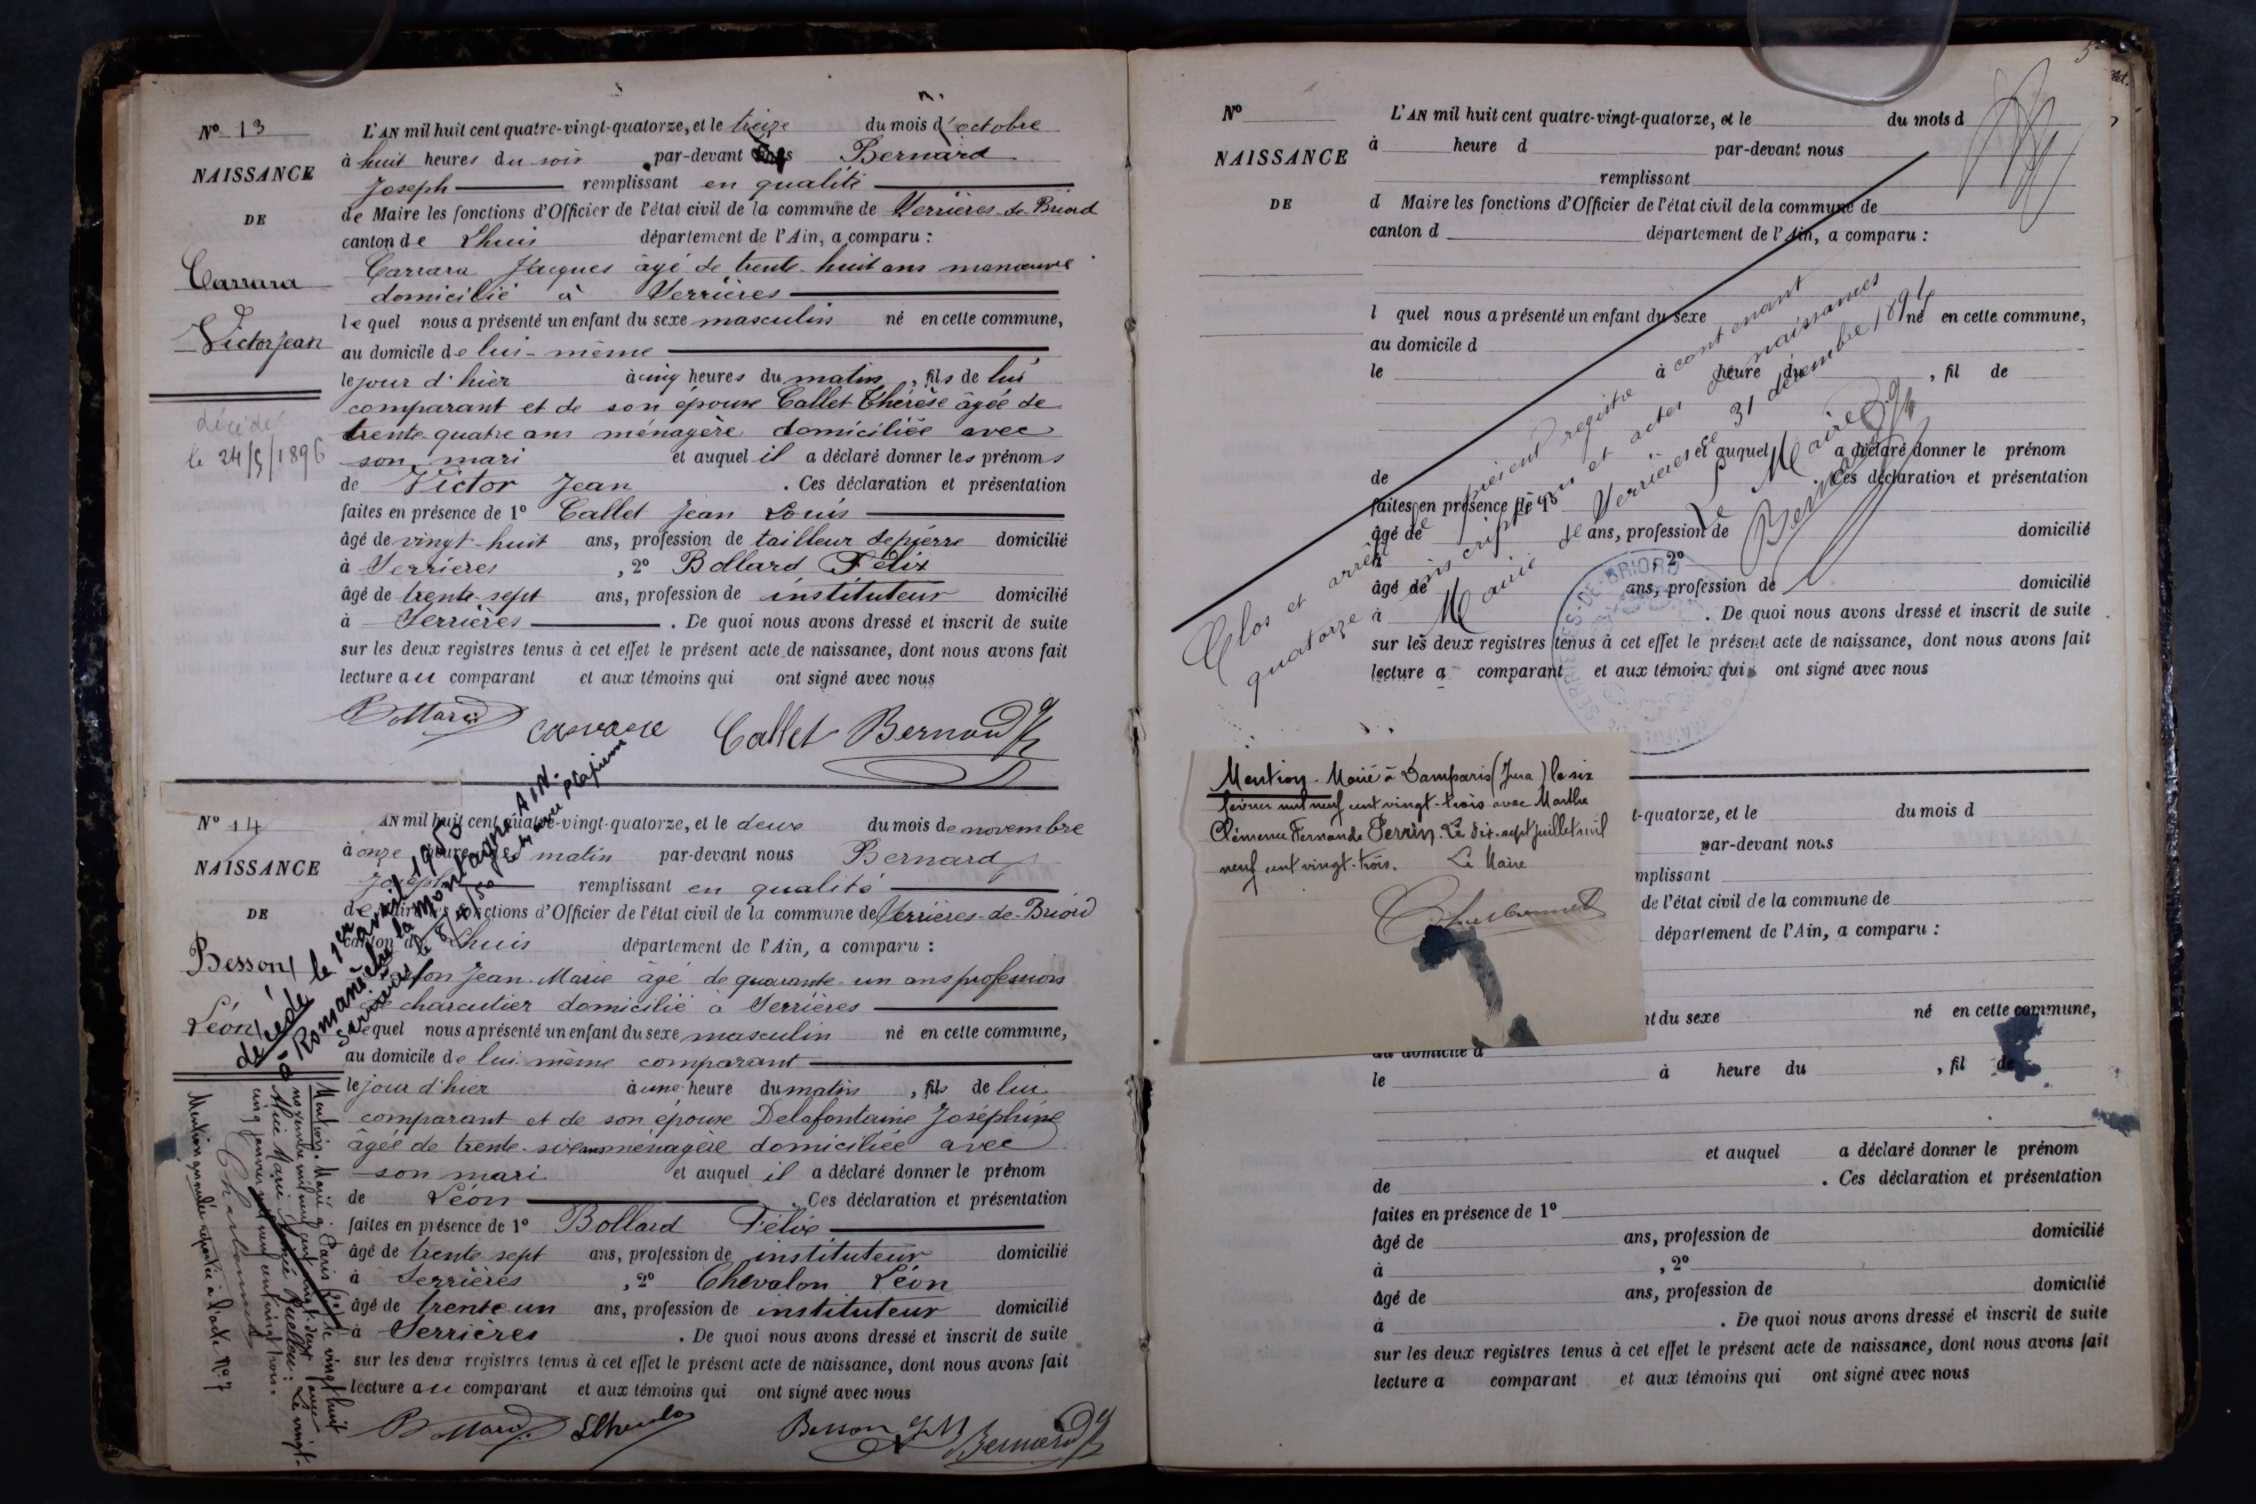 Nº 13
NAISSANCE
DE
Carrara
Victor Jean
décédé
le 24/5/1896
L'AN mil huit cent quatre-vingt-quatorze, et le treize du mois d'octobre
à huit heures du soir par-devant nous Bernard
Joseph remplissant en qualité
de Maire les fonctions d'Officier de l'état civil de la commune de Serrières-de-Briord
canton de Lhuis département de l'Ain, a comparu :
Carrara Jacques âgé de trente-huit ans manœuvre
domicilié à Serrières
lequel nous a présenté un enfant du sexe masculin né en cette commune,
au domicile de lui-même
le jour d'hier à cinq heures du matin, fils de lui
comparant et de son épouse Callet Thérèse âgée de
trente-quatre ans ménagère domiciliée avec
son mari et auquel il a déclaré donner les prénoms
de Victor Jean . Ces déclaration et présentation
faites en présence de 1º Callet Jean Louis
âgé de vingt-huit ans, profession de tailleur de pierre domicilié
à Serrières , 2º Bollard Félix
âgé de trente-sept ans, profession de instituteur domicilié
à Serrières . De quoi nous avons dressé et inscrit de suite
sur les deux registres tenus à cet effet le présent acte de naissance, dont nous avons fait
lecture au comparant et aux témoins qui ont signé avec nous
Bollard Callet Bernard
Nº 14
NAISSANCE
DE
Besson
Léon
décédé le 1er avril 1950
à Romanèche la Montagne AIN.
AN mil huit cent quatre-vingt-quatorze, et le deux du mois de novembre
à onze heures du matin par-devant nous Bernard
Joseph remplissant en qualité
de Maire les fonctions d'Officier de l'état civil de la commune de Serrières-de-Briord
canton de Lhuis département de l'Ain, a comparu :
Besson Jean-Marie âgé de quarante-un ans profession
de charcutier domicilié à Serrières
lequel nous a présenté un enfant du sexe masculin né en cette commune,
au domicile de lui-même comparant
le jour d'hier à une heure du matin, fils de lui
comparant et de son épouse Delafontaine Joséphine
âgée de trente-six ans ménagère domiciliée avec
son mari et auquel il a déclaré donner le prénom
de Léon . Ces déclaration et présentation
faites en présence de 1º Bollard Félix
âgé de trente-sept ans, profession de instituteur domicilié
à Serrières , 2º Chevalon Léon
âgé de trente-un ans, profession de instituteur domicilié
à Serrières . De quoi nous avons dressé et inscrit de suite
sur les deux registres tenus à cet effet le présent acte de naissance, dont nous avons fait
lecture au comparant et aux témoins qui ont signé avec nous
Bollard Besson J M Bernard
Mention. Marié à Paris le vingt-huit
novembre mil neuf cent vingt-deux avec
Alice Marie : Le vingt-
cinq janvier mil neuf cent vingt-trois.
Mention annulée apposée à l'acte Nº 7
Nº
NAISSANCE
DE
L'AN mil huit cent quatre-vingt-quatorze, et le du mois d
à heure d par-devant nous
remplissant
d Maire les fonctions d'Officier de l'état civil de la commune de
canton d département de l'Ain, a comparu :
l quel nous a présenté un enfant du sexe né en cette commune,
au domicile d
le à heure du , fil de
et auquel a déclaré donner le prénom
de . Ces déclaration et présentation
faites en présence de 1º
âgé de ans, profession de domicilié
à , 2º
âgé de ans, profession de domicilié
à . De quoi nous avons dressé et inscrit de suite
sur les deux registres tenus à cet effet le présent acte de naissance, dont nous avons fait
lecture a comparant et aux témoins qui ont signé avec nous
Clos et arrêté le présent registre contenant
quatorze inscriptions et actes de naissances
Mairie de Serrières le 31 décembre 1894
Le Maire
Bernard
Mention. Marié à Damparis (Jura) le six
février mil neuf cent vingt-trois avec Marthe
Clémence Fernande Perrin. Le dix-sept juillet mil
neuf cent vingt-trois. Le Maire
t-quatorze, et le du mois d
par-devant nous
mplissant
de l'état civil de la commune de
département de l'Ain, a comparu :
nt du sexe né en cette commune,
au domicile d
le à heure du , fil de
et auquel a déclaré donner le prénom
de . Ces déclaration et présentation
faites en présence de 1º
âgé de ans, profession de domicilié
à , 2º
âgé de ans, profession de domicilié
à . De quoi nous avons dressé et inscrit de suite
sur les deux registres tenus à cet effet le présent acte de naissance, dont nous avons fait
lecture a comparant et aux témoins qui ont signé avec nous